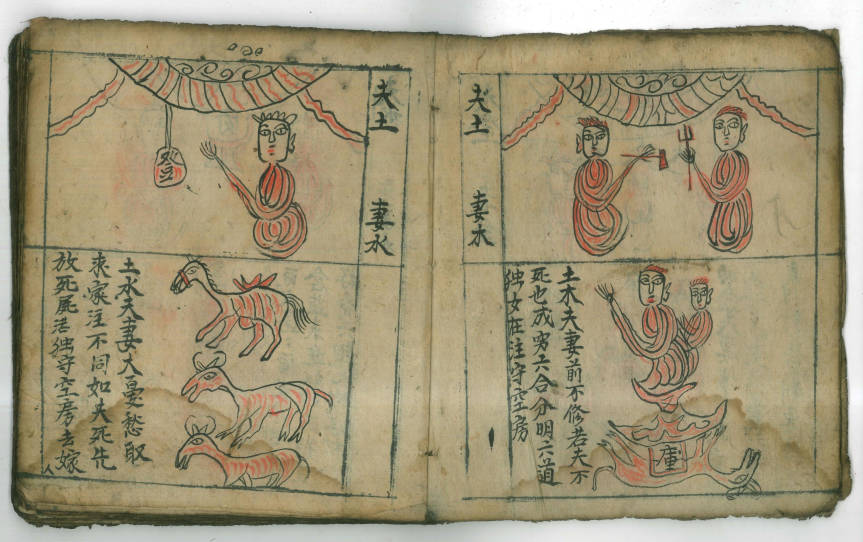 夫土 妻木
土木夫妻前不修若夫不
死也成穷六合分明六道
独女在注守空房
庫
夫土 妻水
登
土水夫妻大憂愁取
来家注不同如夫死先
放死屍活独守空房去嫁
人